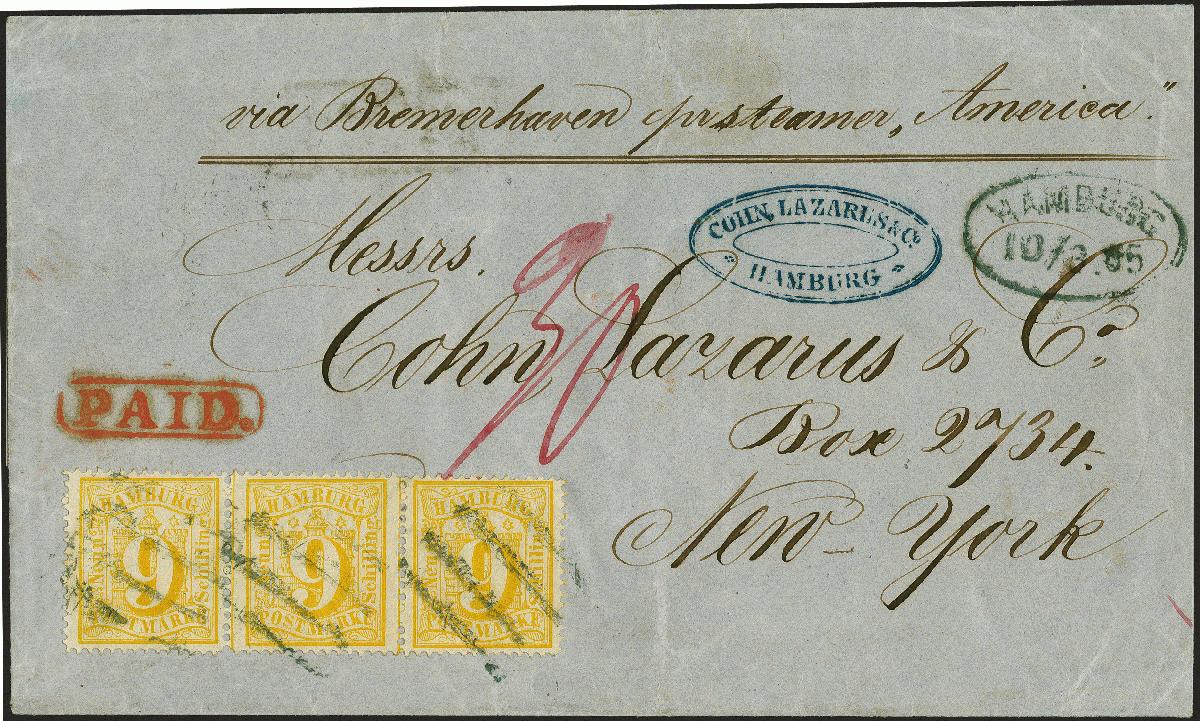 via Bremerhaven pr steamer „America."
Messrs.
Cohn, Lazarus & Co.
Box 2734.
New-York
COHN, LAZARUS & Co.
HAMBURG
HAMBURG
PAID.
HAMBURG
Neun
9
Schilling
POSTMARKE
HAMBURG
Neun
9
Schilling
POSTMARKE
HAMBURG
9